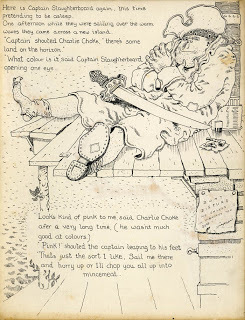 Here is Captain Slaughterboard again, this time
pretending to be asleep.
One afternoon while they were sailing over the warm
waves they came across a new island.
"Captain" shouted Charlie Choke, "there's some
land on the horizon."
"What colour is it" said Captain Slaughterboard,
opening one eye.
Looks kind of pink to me, said Charlie Choke
after a very long time, (he wasn't much
good at colours)
"Pink"! shouted the captain leaping to his feet
Thats just the sort I like, Sail me there
and hurry up or I'll chop you all up into
mincemeat.